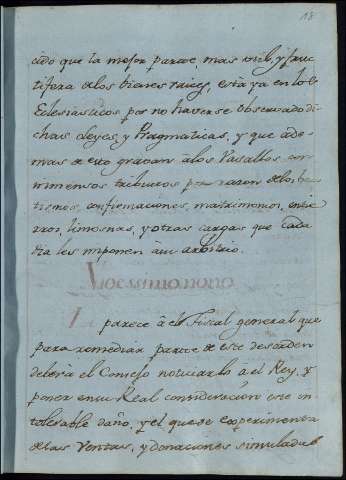 18
cido que la mejor parte, mas util, y fruc
tifera de los bienes raices, está ya en los
Eclesiasticos por no haverse observado di
chas Leyes, y Pragmaticas, y que ade
mas de esto gravan a los Vasallos con
inmensos tributos por razon de los bau
tismos, confirmaciones, matrimonios, entie
rros, limosnas, y otras cargas que cada
dia les imponen à su arbitrio.
parece â el Fiscal general que
para remediar parte de este desorden
deberia el Consejo noticiarlo â el Rey, y
poner en su Real consideracion este in
tolerable daño, y el que se experimenta
de las Ventas, y donaciones simuladas